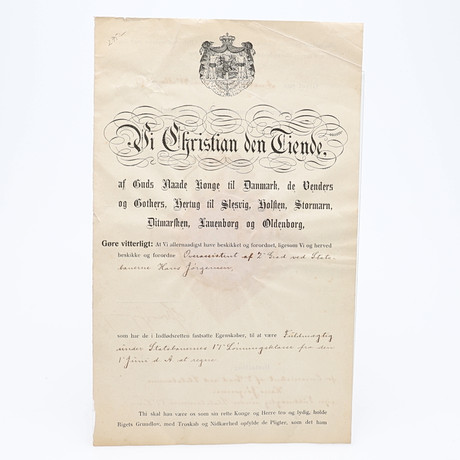 Vi Christian den Tiende,
af Guds Naade Konge til Danmark, de Venders
og Gothers, Hertug til Slesvig, Holsten, Stormarn,
Ditmarsken, Lauenborg og Oldenborg,
Gøre vitterligt: At Vi allernaadigst have beskikket og forordnet, ligesom Vi og herved
beskikke og forordne Overassistent af 2' Grad ved Stats-
banerne Hans Jørgensen,
som har de i Indfødsretten fastsatte Egenskaber, til at være Fuldmægtig
under Statsbanernes 17' Lønningsklasse fra den
1' Juni d. A. at regne.
Thi skal han være os som sin rette Konge og Herre tro og lydig, holde
Rigets Grundlov, med Troskab og Nidkærhed opfylde de Pligter, som det ham